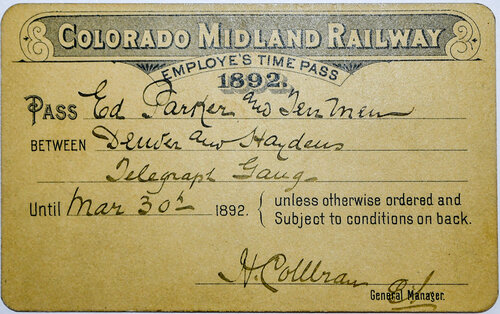 COLORADO MIDLAND RAILWAY
EMPLOYE'S TIME PASS
1892.
PASS Ed Parker and Ten Men
BETWEEN Denver and Haydens
Telegraph Gang
Until Mar 30th 1892. { unless otherwise ordered and
Subject to conditions on back.
H. Collbran
General Manager.